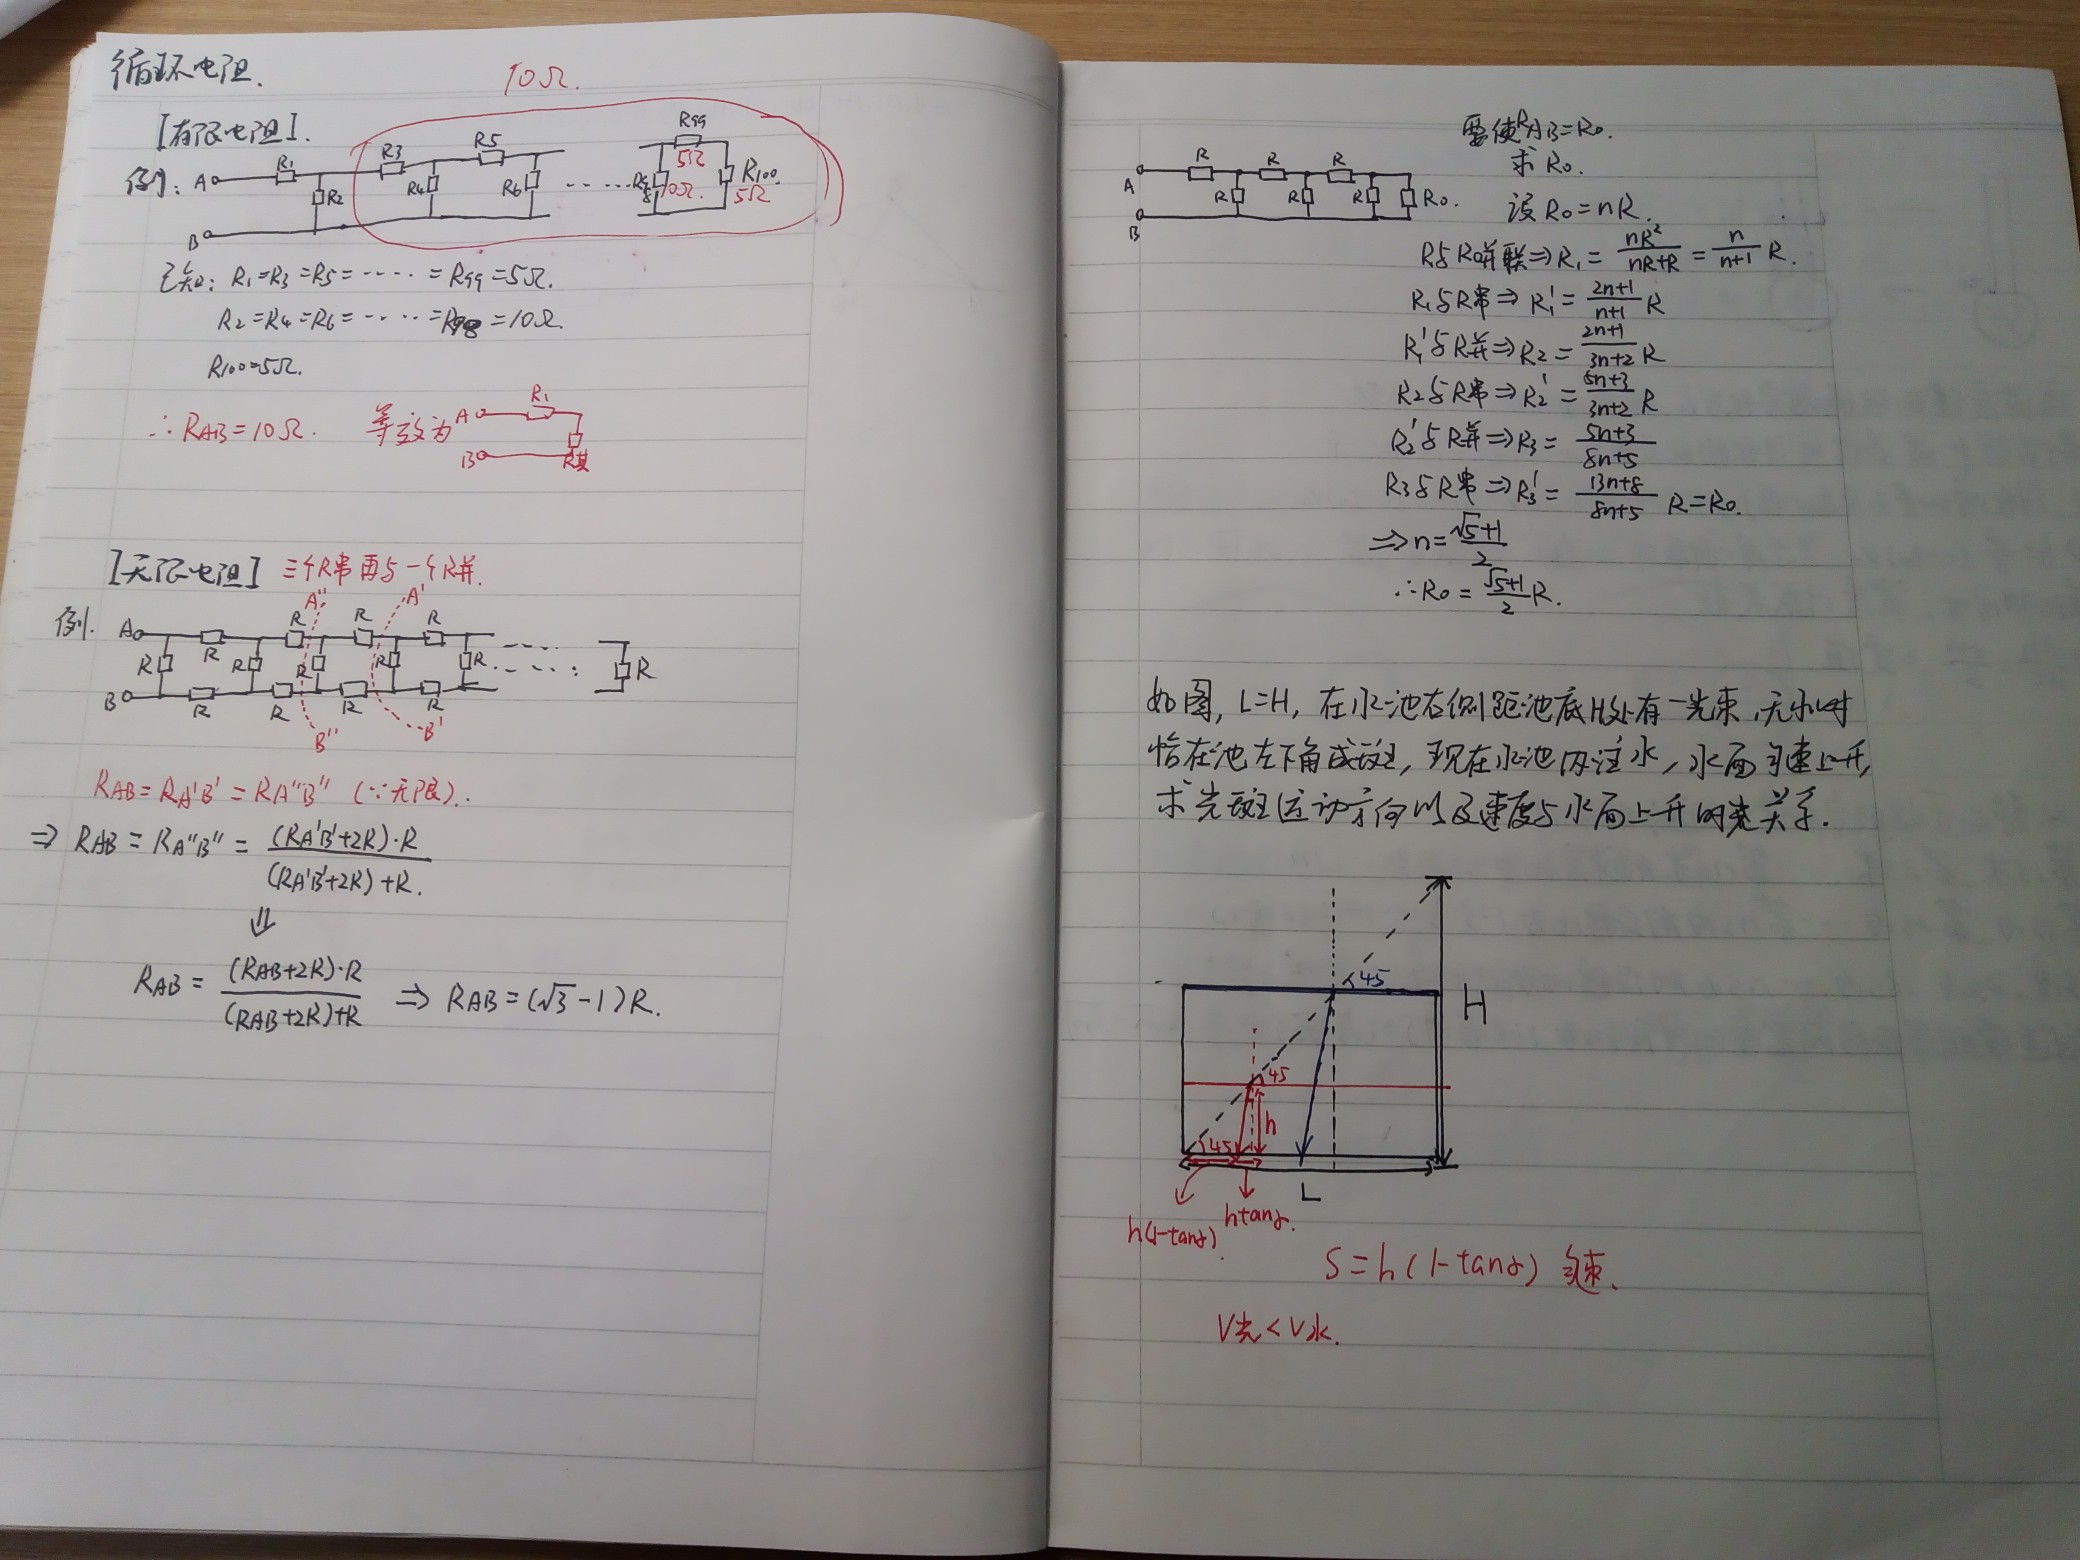 循环电阻.
10Ω.
[有限电阻].
例: A R1 R3 R5 R99 5Ω
R2 R4 R6 …… R98 10Ω. R100. 5Ω
B
已知: R1=R3=R5=……=R99=5Ω.
R2=R4=R6=……=R98=10Ω.
R100=5Ω.
∴RAB=10Ω. 等效为 A R1
B R其
[无限电阻] 三个R串再与一个R并.
A'' A'
例. A R R R R
R R R R R …… R
B R R R R
B'' B'
RAB=RA'B'=RA''B'' (∵无限).
⇒ RAB=RA''B''=(RA'B'+2R)·R/(RA'B'+2R)+R.
⇓
RAB=(RAB+2R)·R/(RAB+2R)+R ⇒ RAB=(√3-1)R.
需使RAB=R0.
求R0.
A R R R
R R R R0.
B
设R0=nR.
R与R0并联⇒R1=nR²/nR+R=n/n+1 R.
R1与R串⇒R1'=2n+1/n+1 R
R1'与R并⇒R2=2n+1/3n+2 R
R2与R串⇒R2'=5n+3/3n+2 R
R2'与R并⇒R3=5n+3/8n+5
R3与R串⇒R3'=13n+8/8n+5 R=R0.
⇒n=√5+1/2
∴R0=√5+1/2 R.
如图, L=H, 在水池右侧距池底H处有一光束,无水时
恰在池左下角成斑, 现在水池内注水, 水面匀速上升,
求光斑运动方向以及速度与水面上升的关系.
45
H
45
h
45
L
h(1-tanγ). htanγ.
S=h(1-tanγ) 匀速.
V光<V水.